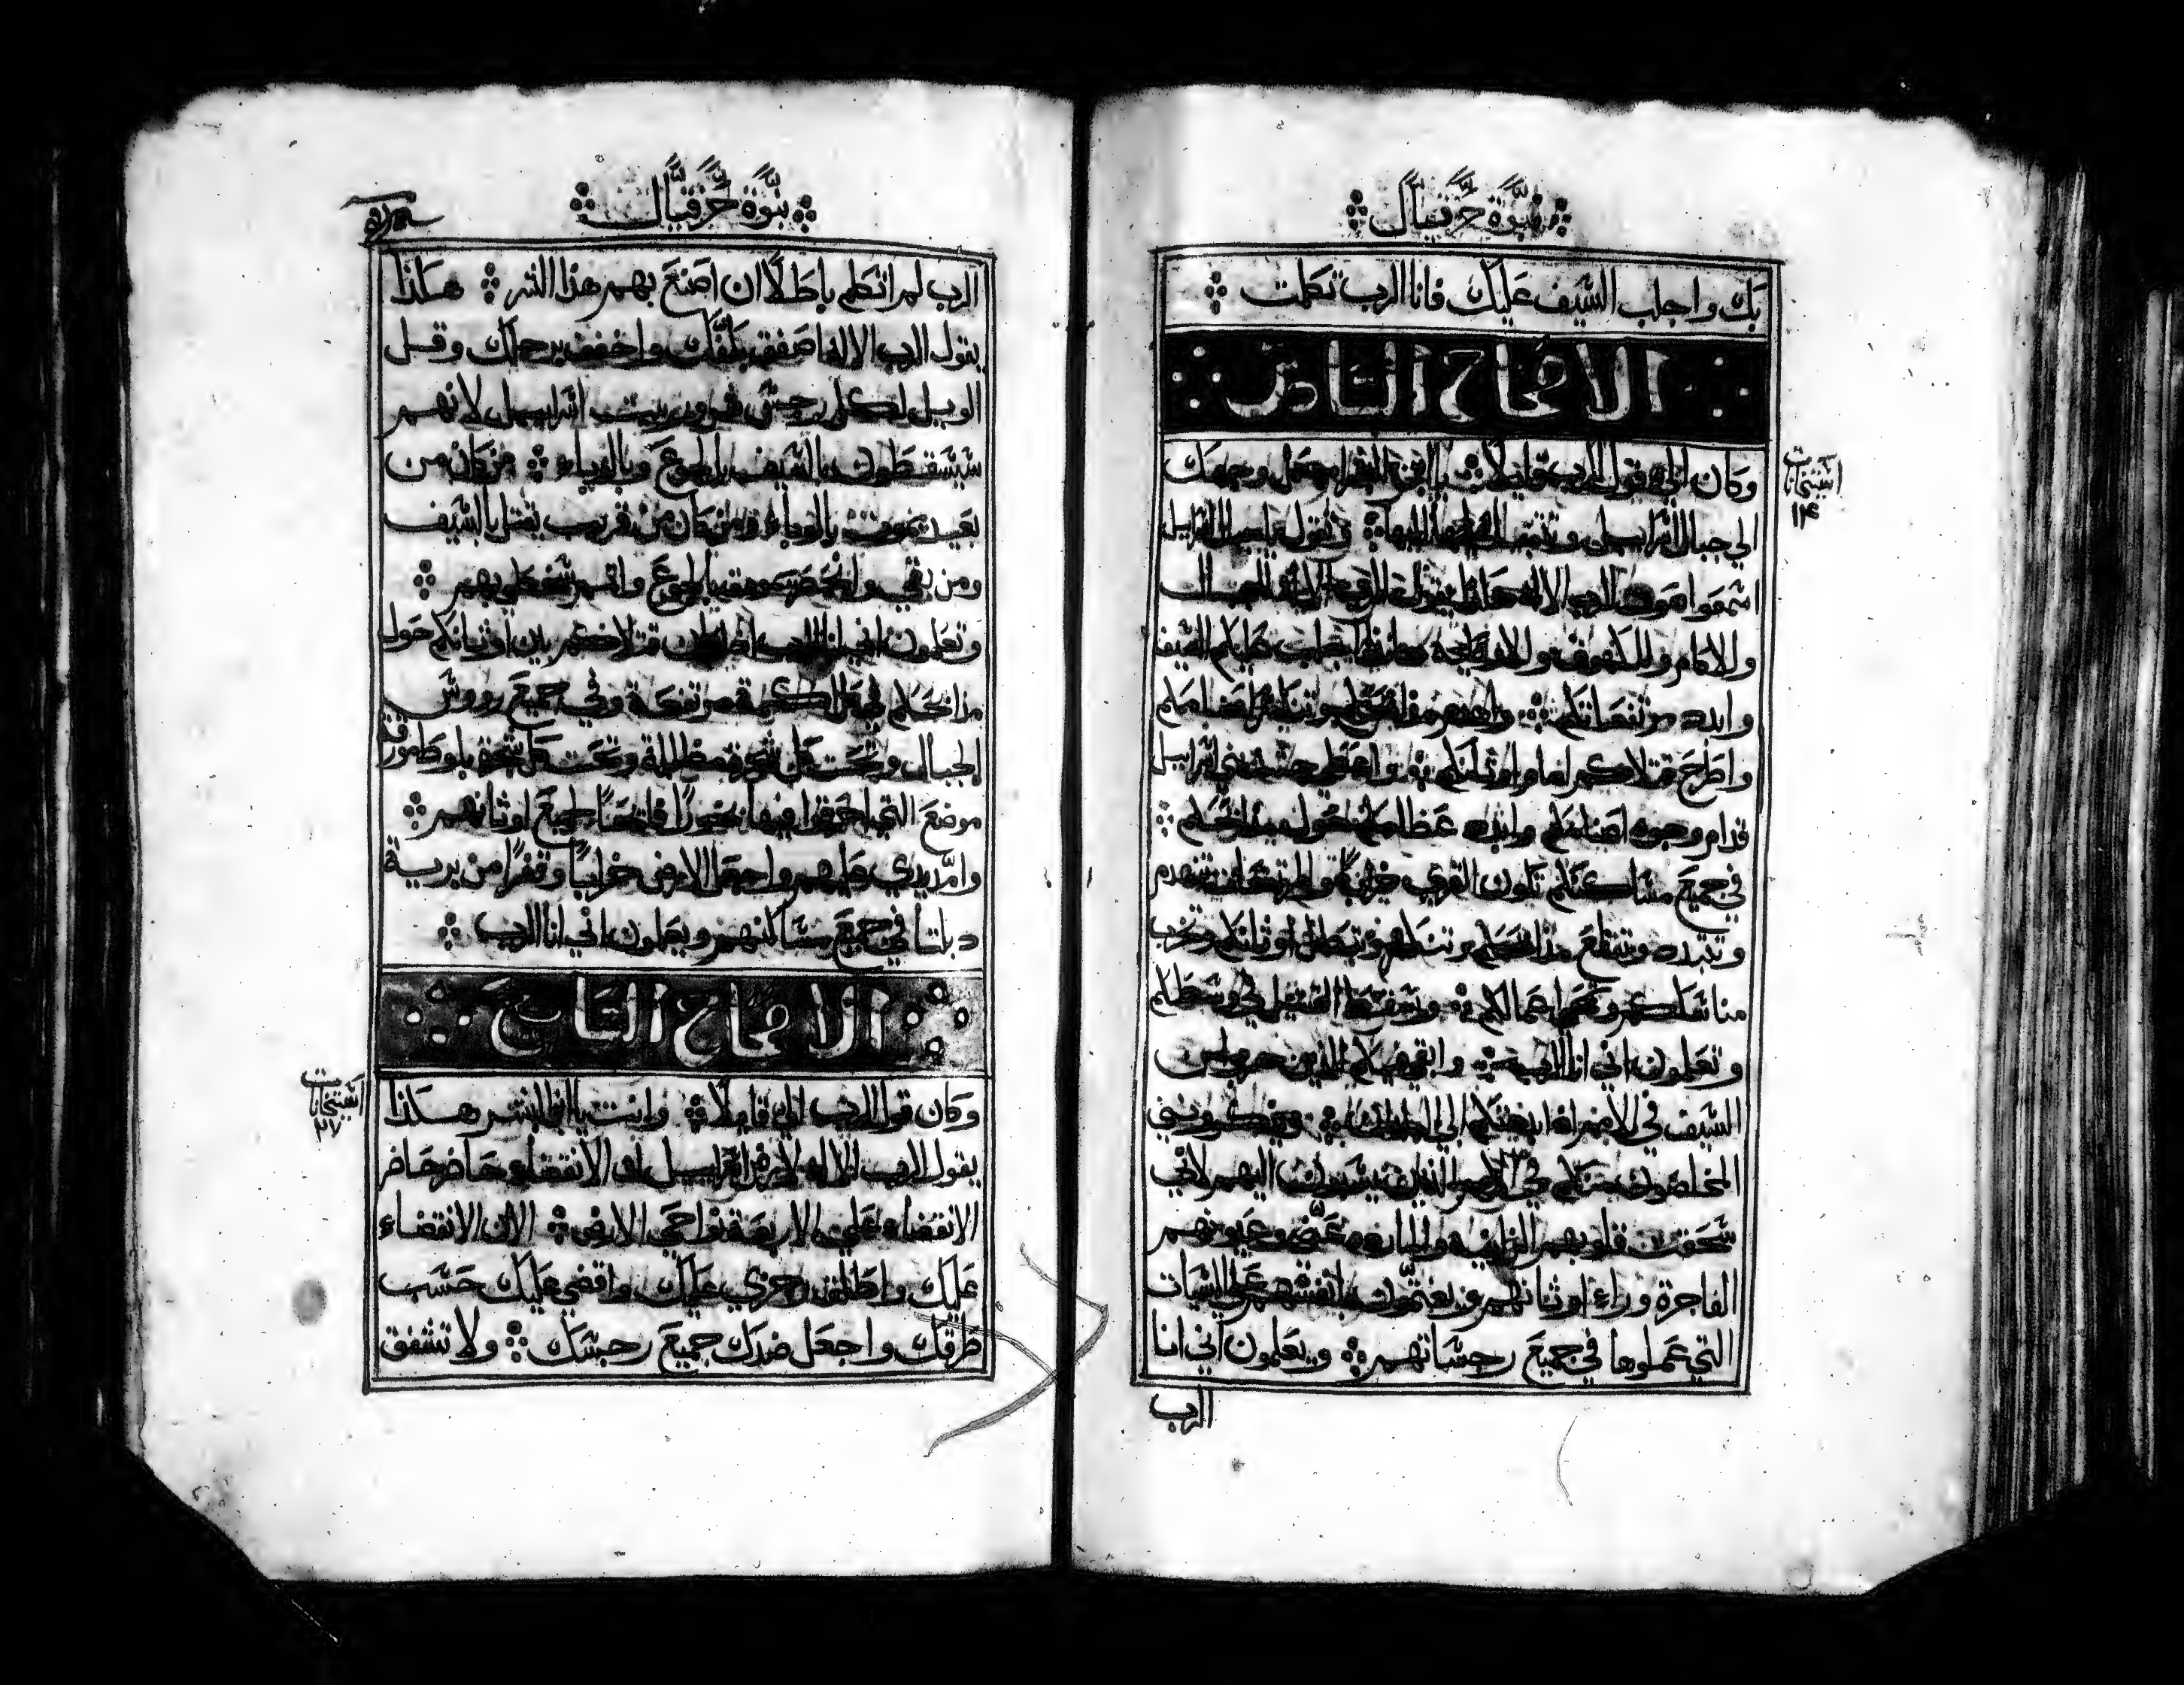 نبوة حزقيال
بك واجلب السيف عليك فانا الرب تكلمت
الافتتاح السادس
استيخانات
١٤
وكان الي قول الرب قايلا يا ابن البشر اجعل وجهك
الي جبال اسراييل وتنبا عليها وتقول يا جبال اسراييل
اسمعوا صوت الرب الاله هكذا يقول الرب الاله للجبال
وللاكام وللكهوف وللاودية هانذا اجلب عليكم السيف
وابدد مرتفعاتكم واهدم مذابحكم وتنكسر اصنامكم
واطرح قتلاكم امام اوثانكم واعطي جثث بني اسراييل
قدام وجوه اصنامكم وابدد عظامكم حول مذابحكم
في جميع مساكنكم تكون القري خرابا والمرتفعات تنهدم
وتتبدد وتنقلع مذابحكم وتنكسر وتبطل اوثانكم وتخرب
مناسككم وتمحي اعمالكم ويسقط القتيل في وسطكم
وتعلمون اني انا الرب وابقي منكم الذين يهربون من
السيف في الامم اذا بددتكم في البلدان ويذكرونني
المخلصون منكم في الامم الذين يسبون اليهم لاني
سحقت قلوبهم الزانية والحايدة عني وعيونهم
الفاجرة وراء اوثانهم ويغتمون بانفسهم علي السيات
التي عملوها في جميع رجساتهم ويعلمون اني انا
الرب
نبوة حزقيال
الرب لم اتكلم باطلا ان اصنع بهم هذا الشر هكذا
يقول الرب الاله اصفق بكفك واخفق برجلك وقل
الويل لكل رجس شرور بيت اسراييل لانهم
سيسقطون بالسيف بالجوع وبالوباء من كان من
بعيد يموت بالوباء ومن كان من قريب يقتل بالسيف
ومن بقي وانحصر يموت بالجوع واتم سخطي بهم
وتعلمون اني انا الرب اذا كان قتلاكم بين اوثانكم حول
مذابحكم في كل اكمة مرتفعة وفي جميع رووس
الجبال وتحت كل شجرة مظللة وتحت كل شجر بلوط مورق
موضع التي احرقوا فيها بخورا فايضا لجميع اوثانهم
وامد يدي عليهم واجعل الارض خرابا وقفرا من برية
دبلتا في جميع مساكنهم ويعلمون اني انا الرب
الافتتاح السابع
استيخانات
٢٧
وكان قول الرب الي قايلا وانت يا ابن البشر هكذا
يقول الرب الاله لارض اسراييل ان الانقضاء حاضر حاضر
الانقضاء علي الاربعة نواحي الارض الان الانقضاء
عليك واطلق رجزي عليك واقضي عليك حسب
طرقك واجعل ضدك جميع رجسك ولا تشفق